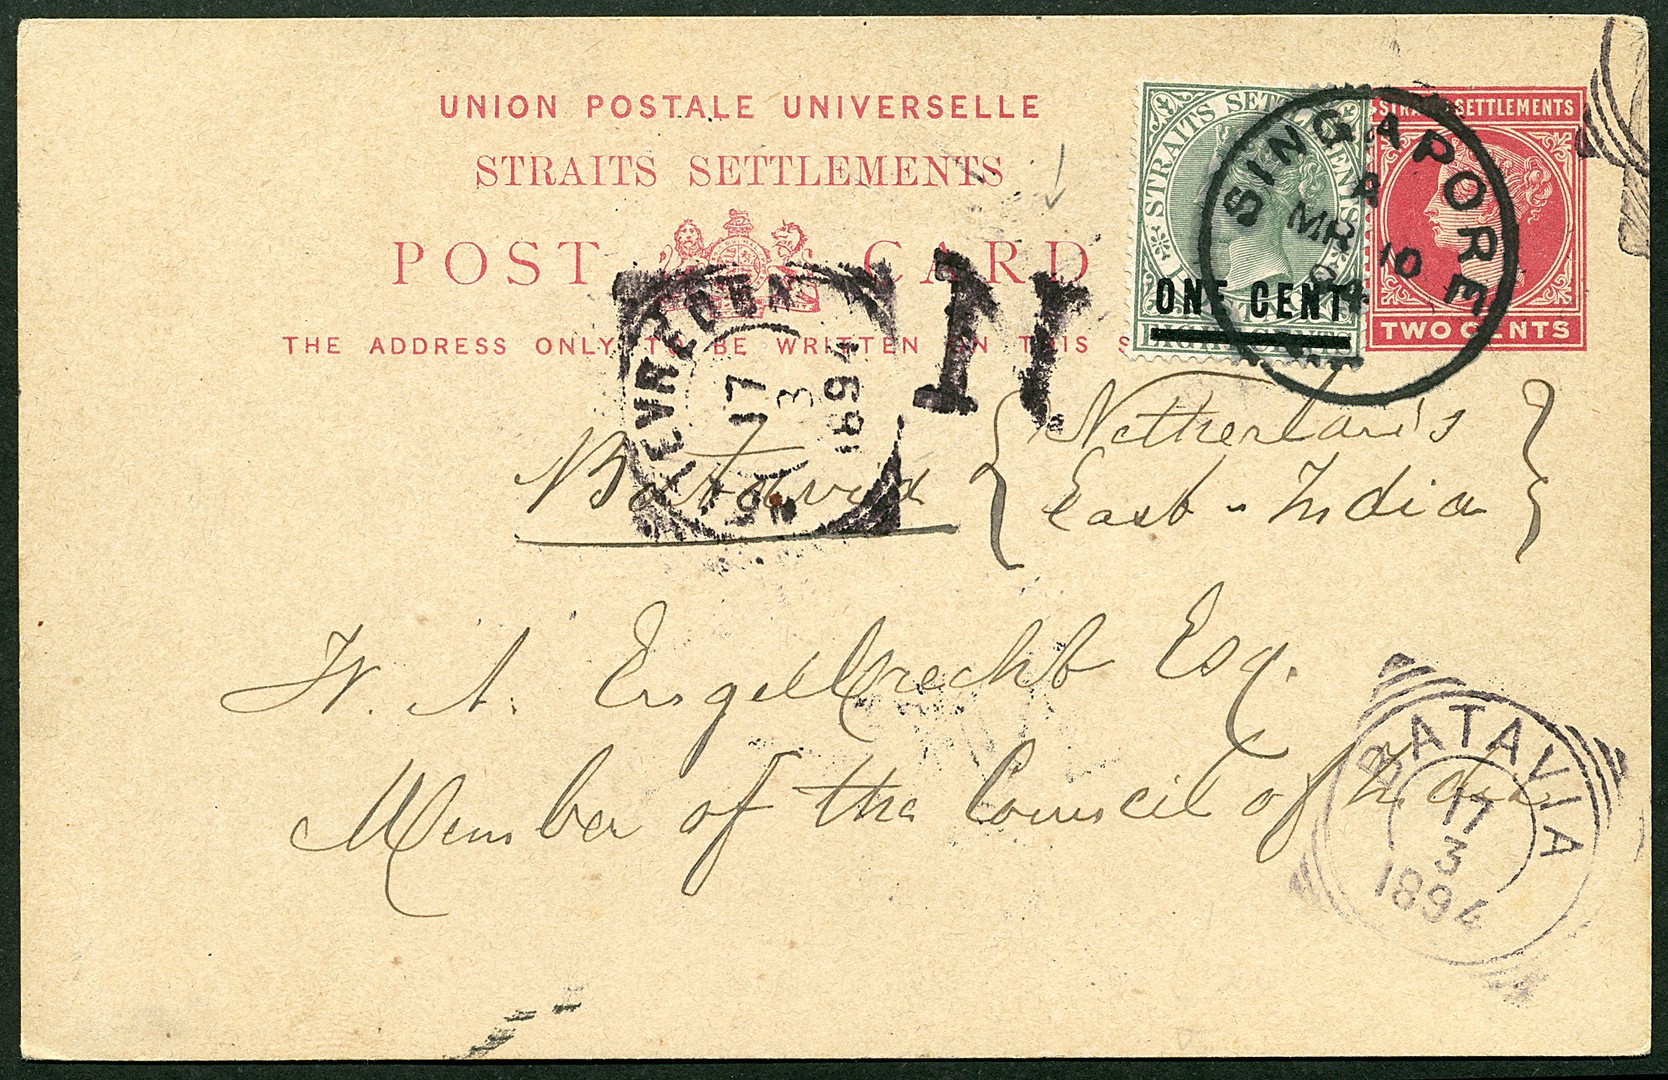 UNION POSTALE UNIVERSELLE
STRAITS SETTLEMENTS
POST CARD
THE ADDRESS ONLY TO BE WRITTEN ON THIS S
STRAITS SETTLEMENTS
ONE CENT
STRAITS SETTLEMENTS
TWO CENTS
SINGAPORE
P
MR 10
94
N
WELTEVREDEN
17
3
1894
Batavia { Netherlands
East-India }
W. A. Engelbrecht Esq.
Member of the Council of India
BATAVIA
17
3
1894